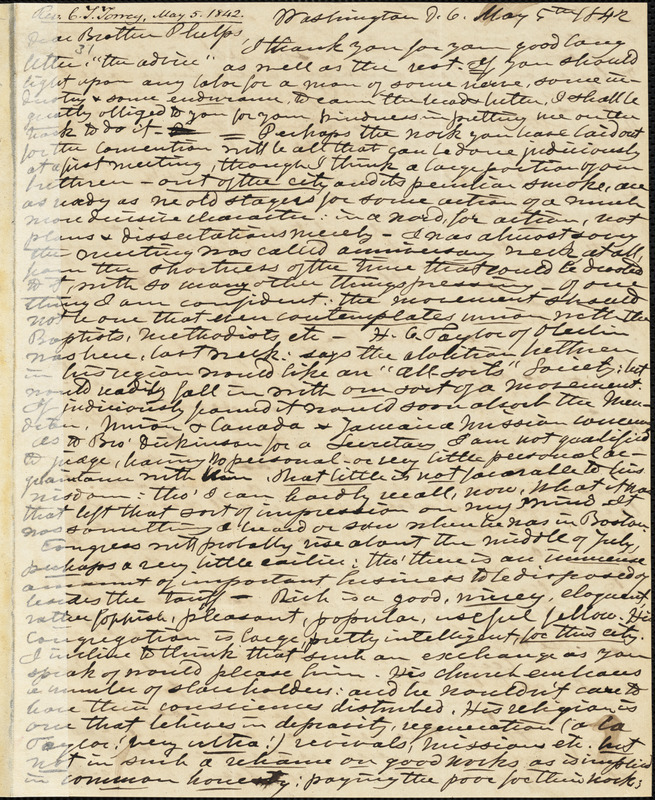 Rev. C. T. Torrey, May 5. 1842.
Washington D. C. May 5th 1842
Dear Brother Phelps
I thank you for your good long
letter: "the advice" as well as the rest. If you should
light upon any labor for a man of some nerve, some in-
dustry & some endurance, to earn the bread & butter, I shall be
greatly obliged to you for your kindness in putting me on the
track to do it — Perhaps the work you have laid out
for the convention will be all that can be done judiciously
at a first meeting, though I think a large portion of our
brethren — out of the city and its peculiar smoke, are
as ready as we old stagers for some action of a much
more decisive character: in a word, for action, not
plans & dissertations merely — I was almost sorry
the meeting was called anniversary week at all,
from the shortness of the time that could be devoted
to it, with so many other things pressing — Of one
thing I am confident: the movement should
not be one that even contemplates union with the
Baptists, Methodists, etc — H. C. Taylor of Oberlin
was here, last week: says the abolition brethren
in his region would like an "all sorts" Society: but
would readily fall in with our sort of a movement.
If judiciously framed it would soon absorb the Men-
dian, Union & Canada & Jamaica Mission concerns
as to Bro' Dickinson for a Secretary I am not qualified
to judge, having no personal or very little personal ac-
quaintance with him. That little is not favorable to his
wisdom: tho' I can hardly recall, now, what it was
that left that sort of impression on my mind. It
was something I heard or saw when he was in Boston.
Congress will probably rise about the middle of July,
perhaps a very little earlier: tho' there is an immense
amount of important business to be disposed of
besides the tariff — Rich is a good, wincy, eloquent
rather foppish, pleasant, popular, useful fellow. His
congregation is large, pretty intelligent, for this city.
I incline to think that such an exchange as you
speak of would please him. His church embraces
a number of slaveholders: and he wouldn't care to
have their consciences disturbed. His religion is
one that believes in depravity, regeneration (a la
Taylor, very ultra!) revivals, missions etc. but
not in such a reliance on good works as is implied
in common honesty: paying the poor for their work;